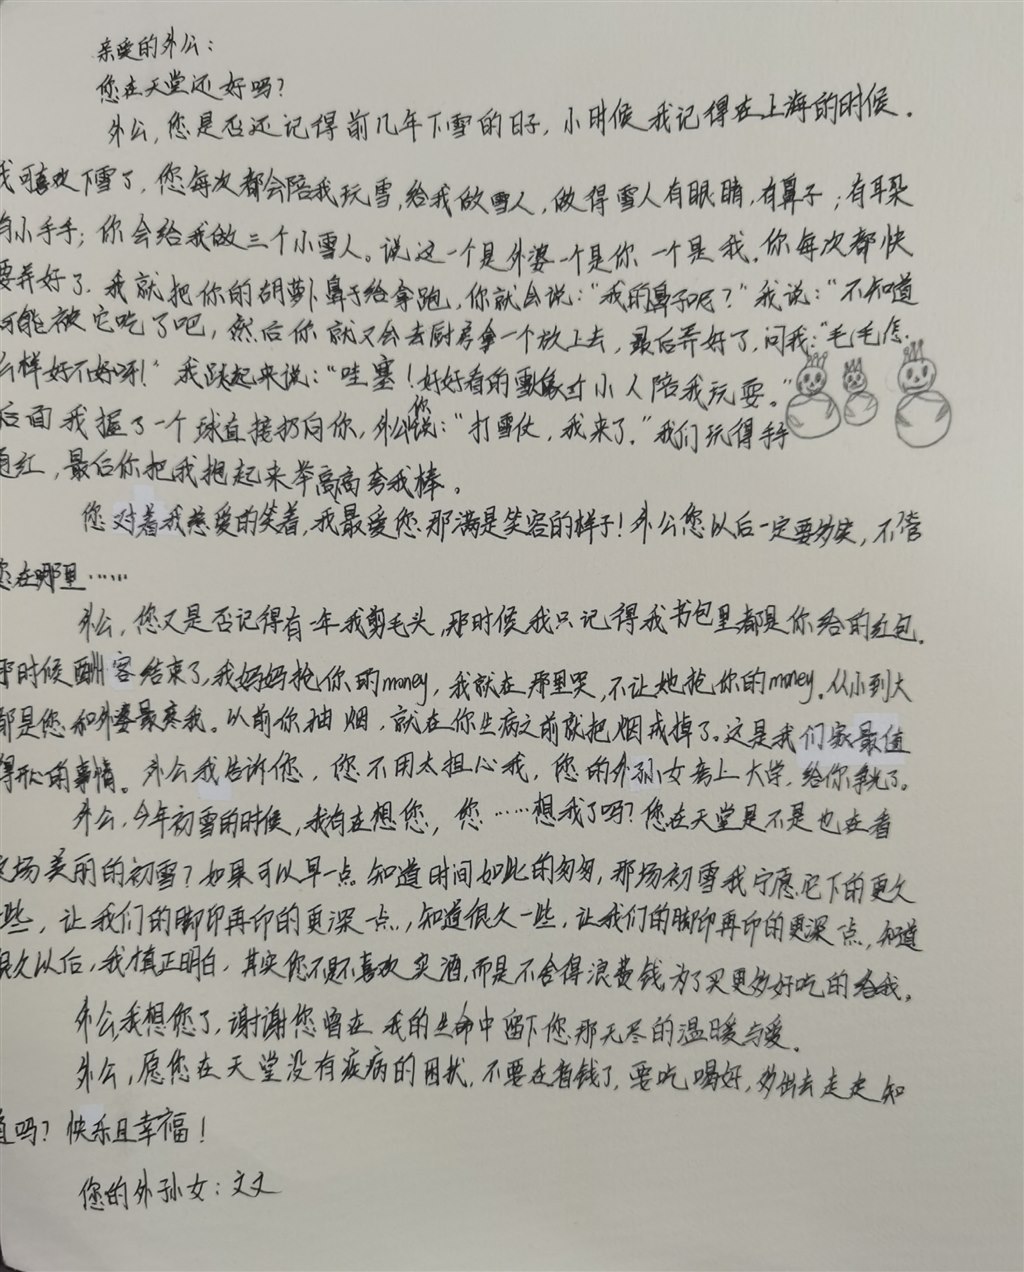 亲爱的外公：
您在天堂还好吗？
外公，您是否还记得前几年下雪的日子，小时候我记得在上海的时候。
我可喜欢下雪了，您每次都会陪我玩雪，给我做雪人，做得雪人有眼睛，有鼻子；有耳朵
有小手手；你会给我做三个小雪人。说这一个是外婆一个是你一个是我。你每次都快
要弄好了，我就把你的胡萝卜鼻子给拿跑，你就会说：“我的鼻子呢？”我说：“不知道
可能被它吃了吧，然后你就又会去厨房拿一个放上去，最后弄好了，问我：“毛毛怎
么样好不好呀！”我跃起来说：“哇塞！好好看的雪小人陪我玩耍。”
后面我握了一个球直接扔向你，外公您说：“打雪仗，我来了。”我们玩得手手
通红，最后你把我抱起来举高高夸我棒。
您对着我慈爱的笑着，我最爱您那满是笑容的样子！外公您以后一定要多笑，不管
您在哪里……
外公，您又是否记得有一年我剪毛头，那时候我只记得我书包里都是你给的红包。
那时候酬客结束了，我妈妈抢你的money，我就在那里哭，不让她抢你的money。从小到大
都是您和外婆最疼我。以前你抽烟，就在你生病之前就把烟戒掉了。这是我们家最值
得开心的事情。外公我告诉您，您不用太担心我，您的外孙女考上大学，给你争光了。
外公，今年初雪的时候，我有在想您，您……想我了吗？您在天堂是不是也在看
这场美丽的初雪？如果可以早一点知道时间如此的匆匆，那场初雪我宁愿它下的更久
一些，让我们的脚印再印的更深一点，知道很久一些，让我们的脚印再印的更深一点，知道
很久以后，我才真正明白，其实您不是不喜欢买酒，而是不舍得浪费钱，为了买更多好吃的给我。
外公，我想您了，谢谢您曾在我的生命中留下您那无尽的温暖与爱。
外公，愿您在天堂没有疾病的困扰，不要在省钱了，要吃喝好，多出去走走知
道吗？快乐且幸福！
您的外孙女：文文